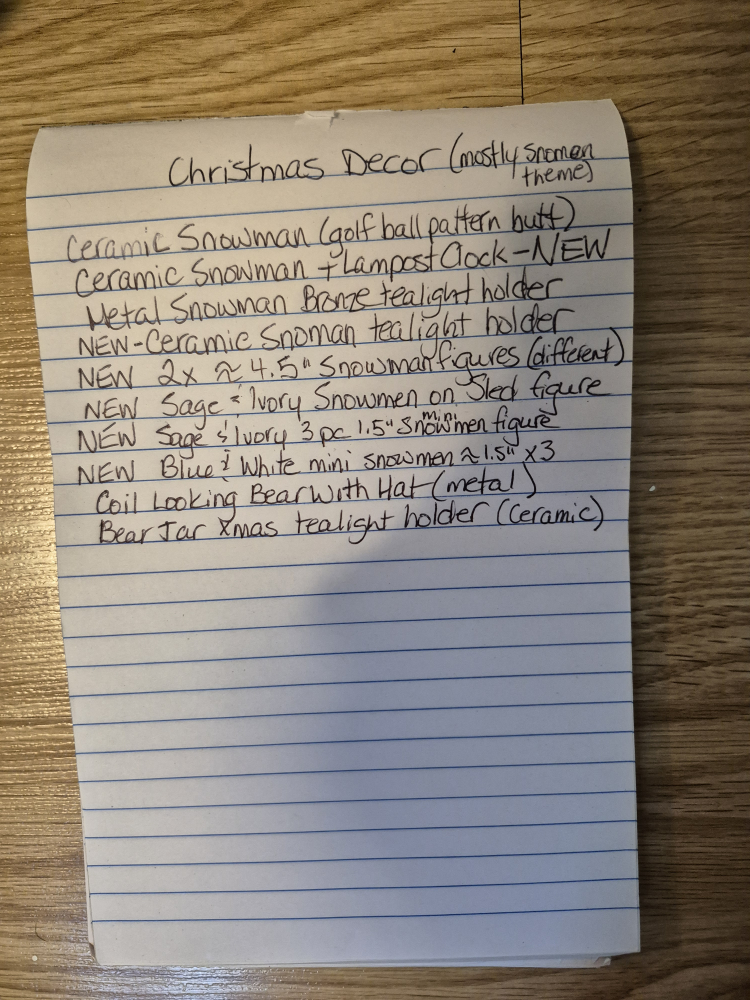 Christmas Decor (mostly snomen
theme)
Ceramic Snowman (golf ball pattern butt)
Ceramic Snowman + Lampost Clock - NEW
Metal Snowman Bronze tealight holder
NEW - Ceramic Snoman tealight holder
NEW 2x ≈ 4.5" Snowman figures (different)
NEW Sage & Ivory Snowmen on Sled figure
NEW Sage & Ivory 3 pc 1.5" mini Snowmen figure
NEW Blue & White mini snowmen ≈ 1.5" x3
Coil Looking Bear With Hat (metal)
Bear Jar Xmas tealight holder (ceramic)